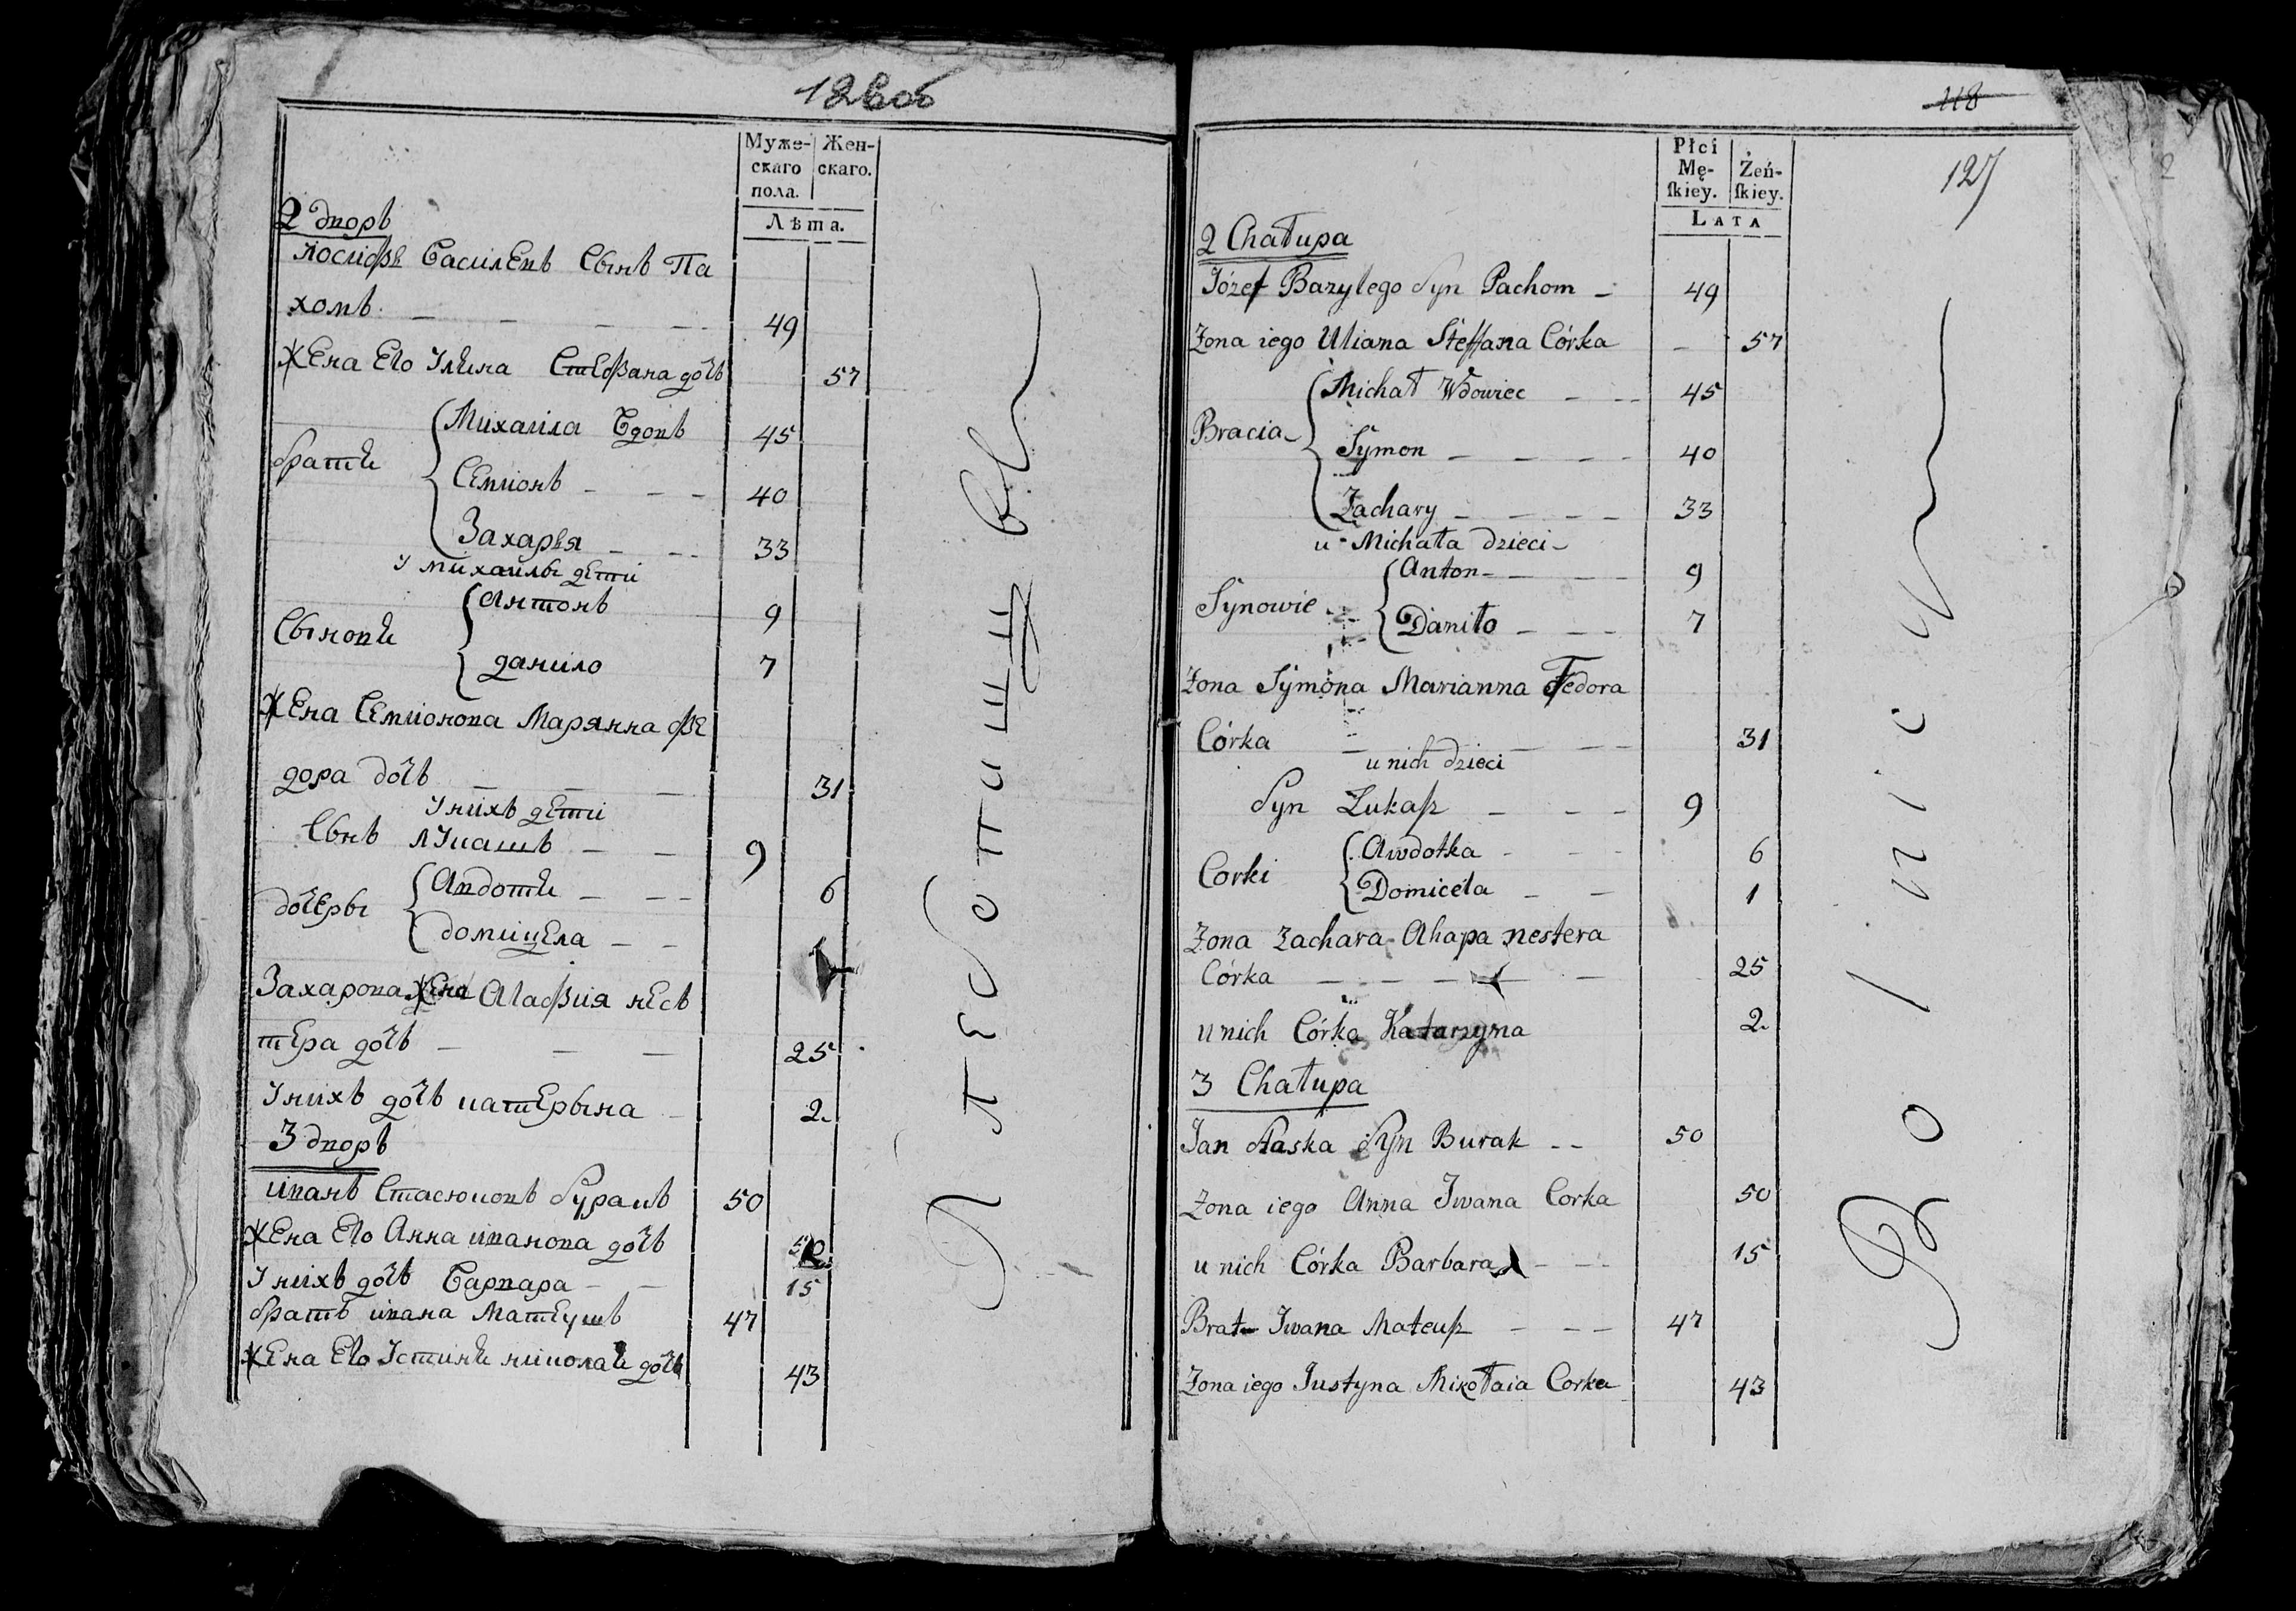 126об
Муже-
скаго
пола.
Жен-
скаго.
Лѣта.
2 дворъ
Іосифъ Василевъ Сынъ Па
хомъ. — — — — 49
Жена Его Улѣна Стефана дочь 57
братѣ
Михаила Вдовъ 45
Семионъ — — — 40
Захарья — — 33
У михаилы дети
Сыновѣ
Антонъ 9
данило 7
Жена Семионова Марянна фе
дора дочь — — — 31
У нихъ дети
Сынъ лукашъ — — 9
дочеры
Авдотѣ — — — 6
домицела — — 1
Захарова жена Агафия нес
тера дочь — — — 25
У нихъ дочь катерына — 2.
3 дворъ
иванъ Стасюковъ буракъ 50
Жена Его Анна иванова дочь 50
У нихъ дочь Варвара — — 15
братъ ивана Матеушъ 47
Жена Его Устинѣ николаѣ дочь 43
Płci
Mę-
ſkiey.
Żeń-
ſkiey.
LATA
118
127
2 Chałupa
Józef Bazylego Syn Pachom — 49
Zona iego Uliana Steffana Córka — 57
Bracia
Michał Wdowiec — — 45
Symon — — — — 40
Zachary — — — — 33
u Michała dzieci —
Synowie
Anton — — — 9
Daniło — — — 7
Zona Symona Marianna Fedora
Córka — — — — 31
u nich dzieci
Syn Łukaſz — — — 9
Corki
Awdotka — — — 6
Domicela — — 1
Zona Zachara Ahapa nestera
Córka — — — — — 25
u nich Córka Katarzyna 2.
3 Chałupa
Jan Staska Syn Burak — — 50
Zona iego Anna Iwana Corka 50
u nich Córka Barbara — — 15
Brat Iwana Mateuſz — — — 47
Zona iego Justyna Mikołaia Corka 43